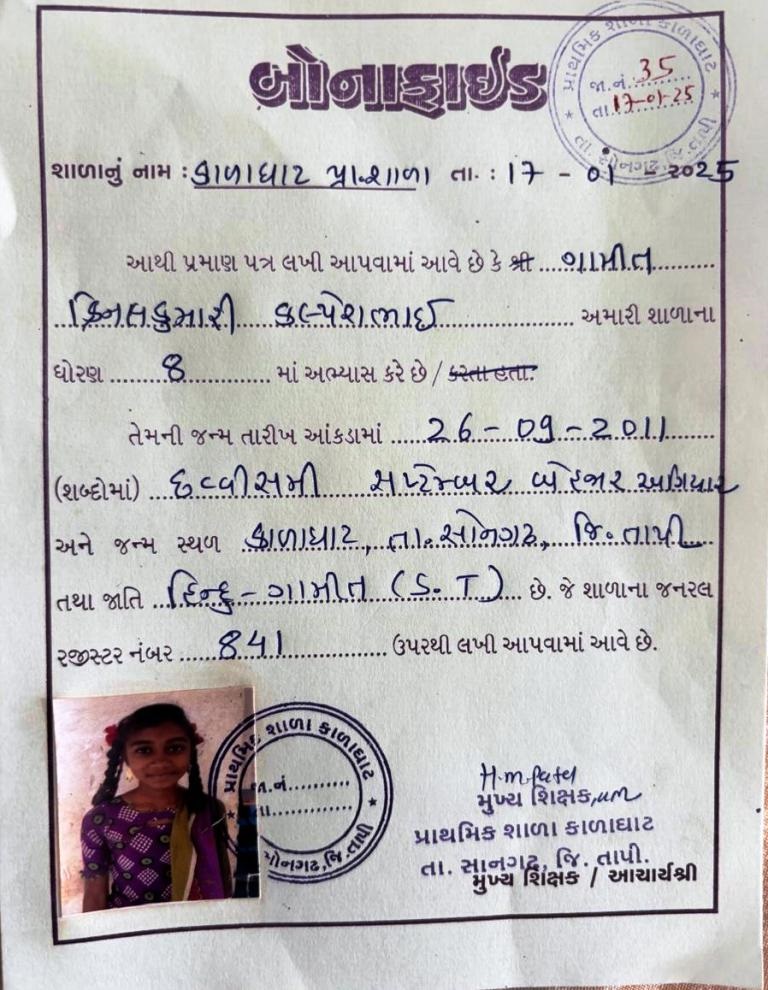 બોનાફાઈડ
પ્રાથમિક શાળા કાળાઘાટ
જા.નં. 35
તા. 17-01-25
તા. સોનગઢ, જિ. તાપી
શાળાનું નામ : કાળાઘાટ પ્રા.શાળા તા. : 17 - 01 - 2025
આથી પ્રમાણ પત્ર લખી આપવામાં આવે છે કે શ્રી ગામીત
ક્રિનલકુમારી કલ્પેશભાઈ અમારી શાળાના
ધોરણ 8 માં અભ્યાસ કરે છે / કરતા હતા.
તેમની જન્મ તારીખ આંકડામાં 26-09-2011
(શબ્દોમાં) છવ્વીસમી સપ્ટેમ્બર બે હજાર અગિયાર
અને જન્મ સ્થળ કાળાઘાટ, તા.સોનગઢ, જિ.તાપી
તથા જાતિ હિન્દુ-ગામીત (S.T) છે. જે શાળાના જનરલ
રજીસ્ટર નંબર 841 ઉપરથી લખી આપવામાં આવે છે.
પ્રાથમિક શાળા કાળાઘાટ
જા.નં.
સોનગઢ, જિ. તાપી
H.m.Patel
મુખ્ય શિક્ષક
પ્રાથમિક શાળા કાળાઘાટ
તા. સોનગઢ, જિ. તાપી.
મુખ્ય શિક્ષક / આચાર્યશ્રી